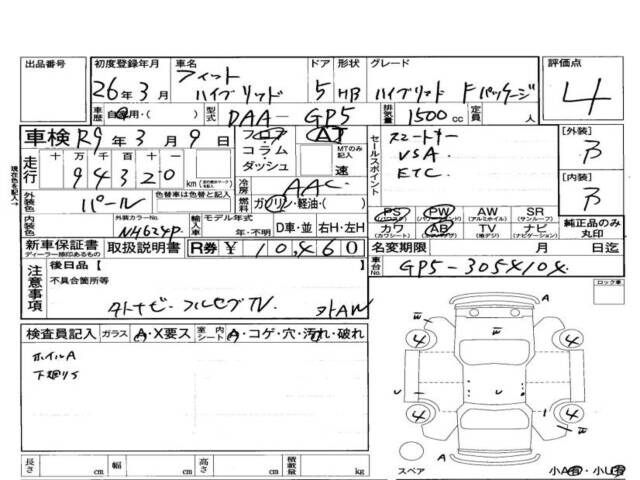 出品番号 初度登録年月 車名 ドア 形状 グレード 評価点
フィット
26年3月 ハイブリッド 5 HB ハイブリッド Fパッケージ 4
車歴 自家用・( ) 型式 DAA-GP5 排気量 1500cc 定員 人
車検 R9年3月9日 フロア AT
コラム・ダッシュ MTのみ記入 速
走行 十万千百十一
94320 km
冷房 AAC
燃料 ガソリン・軽油・( )
セールスポイント
スマートキー
VSA
ETC
[外装] B
[内装] B
外装色 パール 色替車は色替と記入
PS PW AW SR
(パワーウィンド) (アルミホイル) (サンルーフ)
純正品のみ丸印
内装色 外装カラーNo. NH624P
輸入車 モデル年式 年・不明 D車・並 右H・左H
カワ AB TV ナビ
(カワシート) (エアバッグ) (地デジ) (ナビゲーション)
新車保証書 取扱説明書 R券 ¥10,460
ディーラー捺印あるもの
名変期限 月 日迄
車台No. GP5-3054104
現在色を記入→
注意事項
後日品[ ]
不具合箇所等
タトナビ-フルセグTV 外AW
ロック車
検査員記入 ガラス A・X要ス 室内シート A・コゲ・穴・汚れ・破れ
ホイルA
下廻りS
A
W
4 4
U U
4 4
W
A
スペア
小A有・小U有
長さ cm 幅 cm 高さ cm 積載量 kg